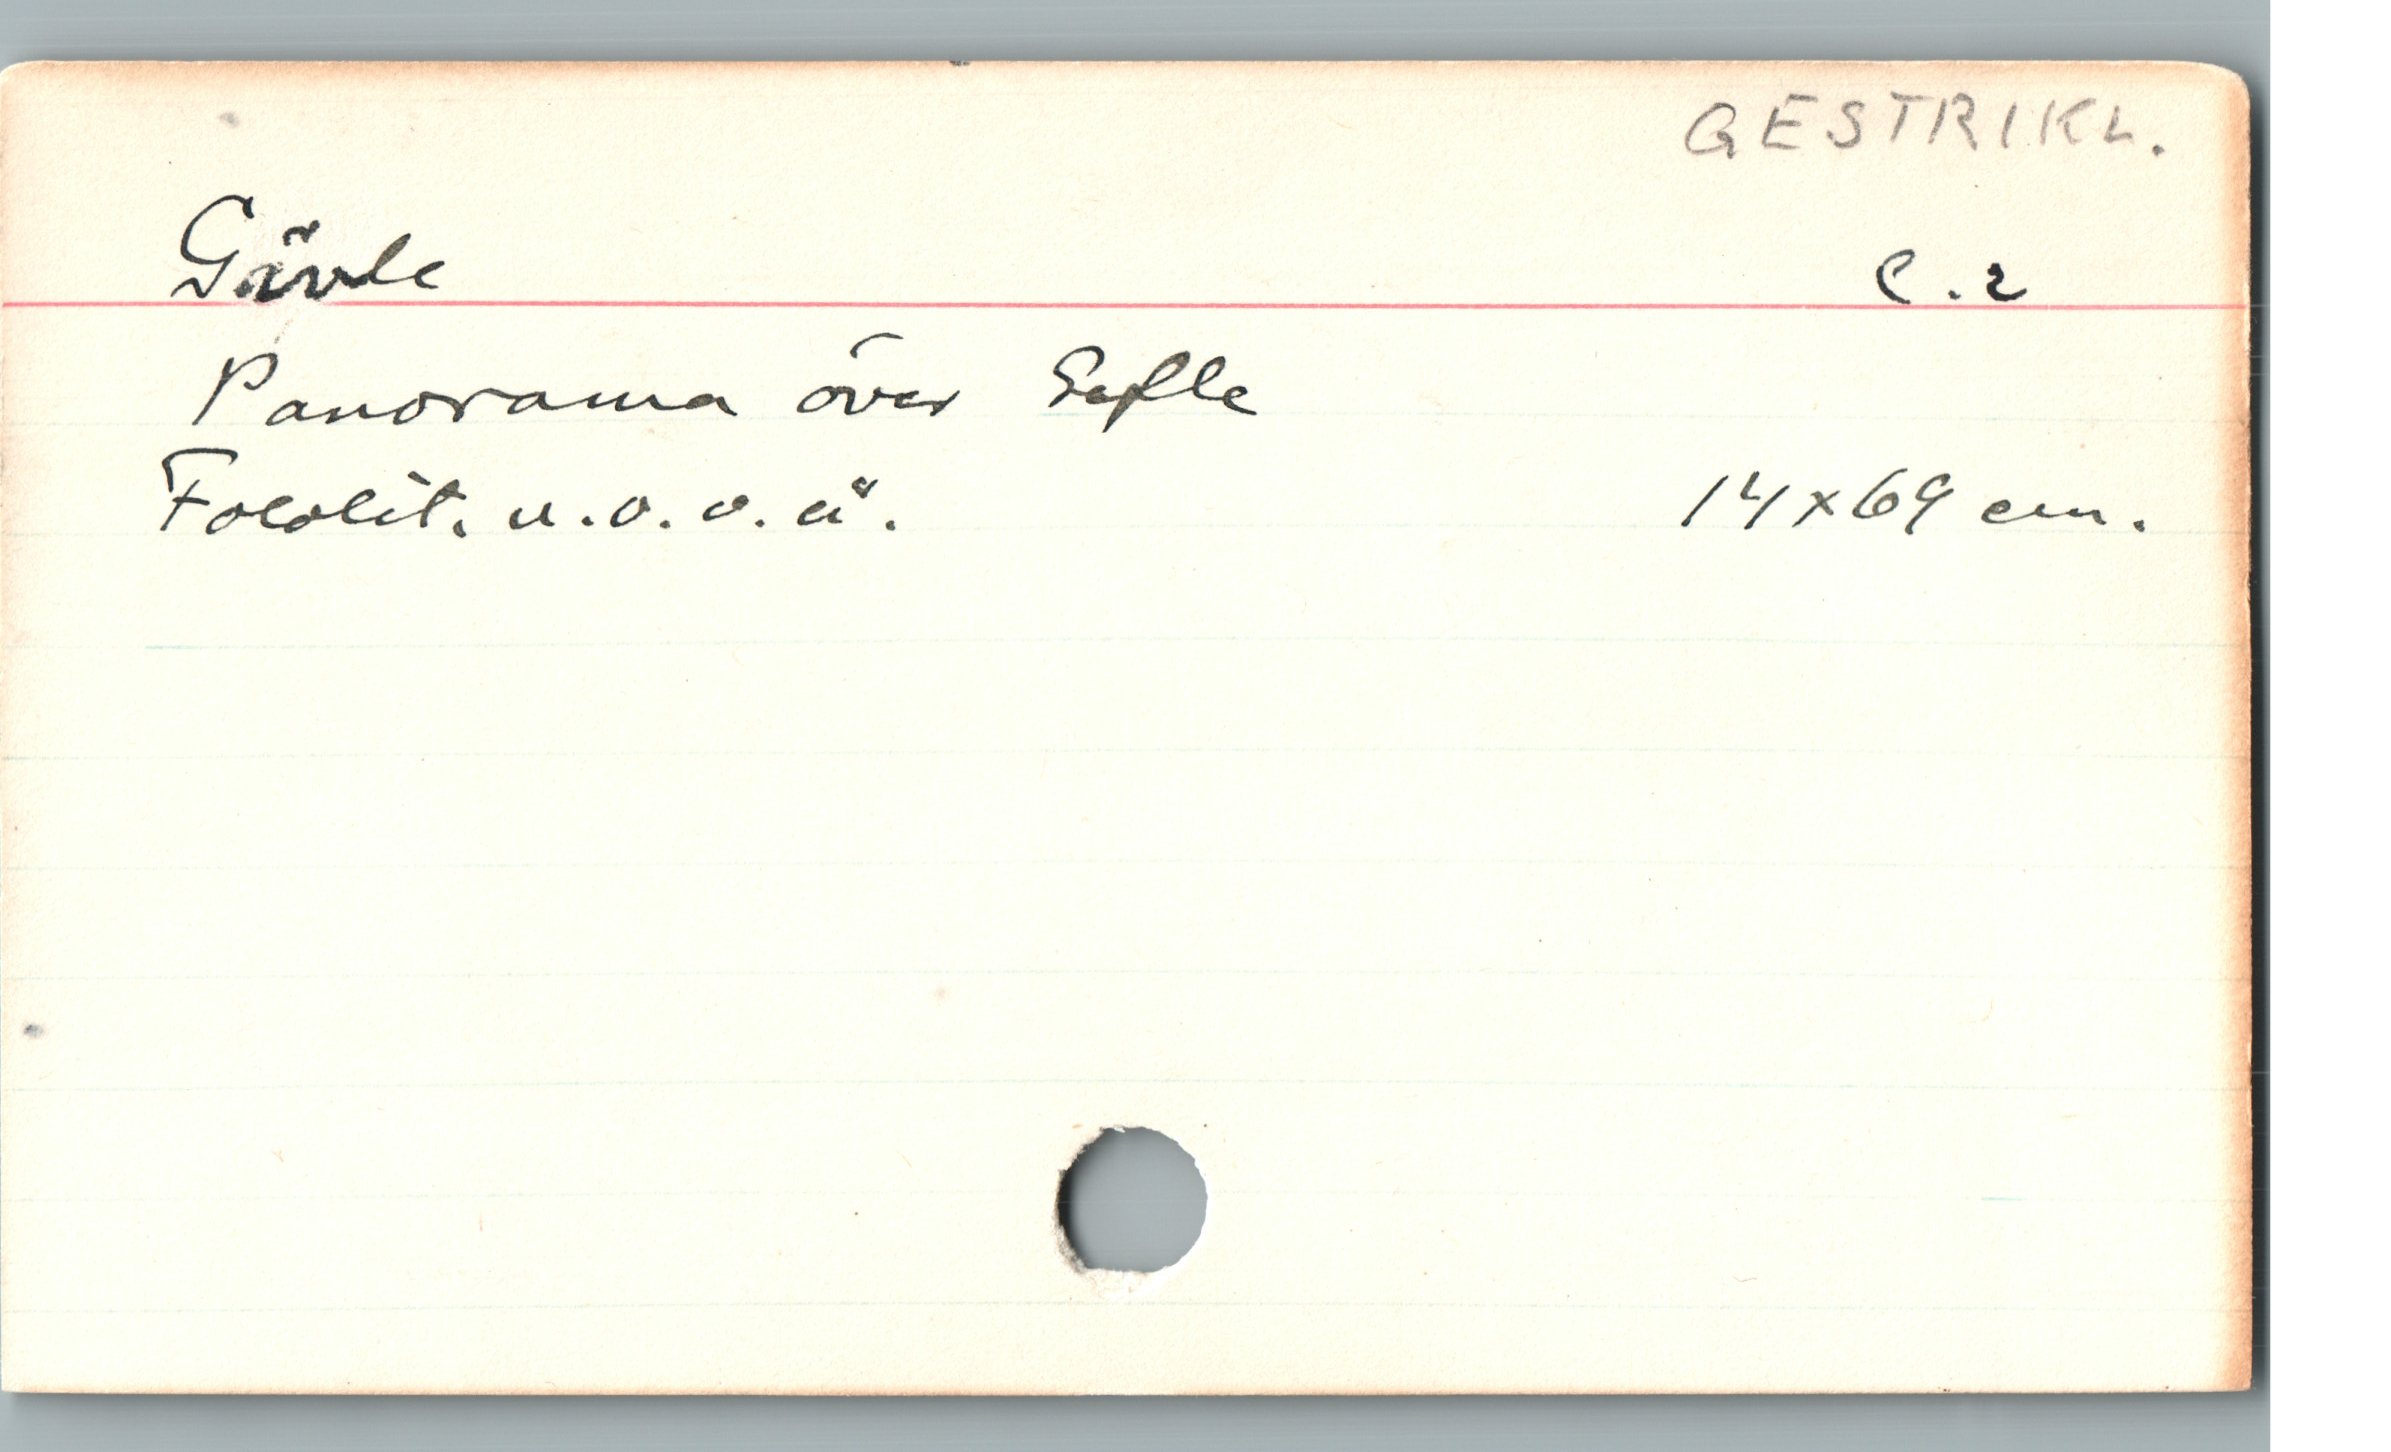 GESTRIKL.
Gävle C.2
Panorama över Gefle
Fotolit. u.o.o.å. 14x69 cm.